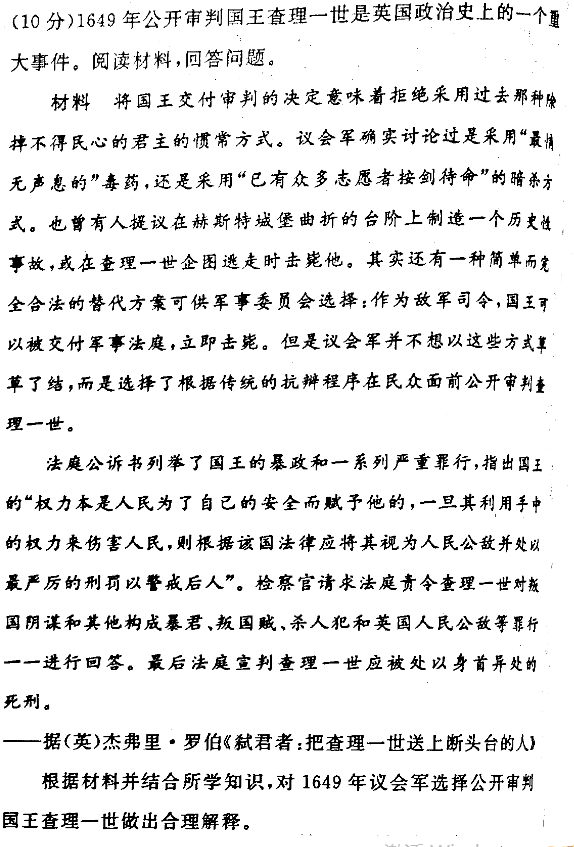 (10分)1649年公开审判国王查理一世是英国政治史上的一个重
大事件。阅读材料,回答问题。
材料 将国王交付审判的决定意味着拒绝采用过去那种除
掉不得民心的君主的惯常方式。议会军确实讨论过是采用“最悄
无声息的”毒药,还是采用“已有众多志愿者按剑待命”的暗杀方
式。也曾有人提议在赫斯特城堡曲折的台阶上制造一个历史性
事故,或在查理一世企图逃走时击毙他。其实还有一种简单而完
全合法的替代方案可供军事委员会选择:作为敌军司令,国王可
以被交付军事法庭,立即击毙。但是议会军并不想以这些方式草
草了结,而是选择了根据传统的抗辩程序在民众面前公开审判查
理一世。
法庭公诉书列举了国王的暴政和一系列严重罪行,指出国王
的“权力本是人民为了自己的安全而赋予他的,一旦其利用手中
的权力来伤害人民,则根据该国法律应将其视为人民公敌并处以
最严厉的刑罚以警戒后人”。检察官请求法庭责令查理一世对叛
国阴谋和其他构成暴君、叛国贼、杀人犯和英国人民公敌等罪行
一一进行回答。最后法庭宣判查理一世应被处以身首异处的
死刑。
——据(英)杰弗里·罗伯《弑君者:把查理一世送上断头台的人》
根据材料并结合所学知识,对1649年议会军选择公开审判
国王查理一世做出合理解释。